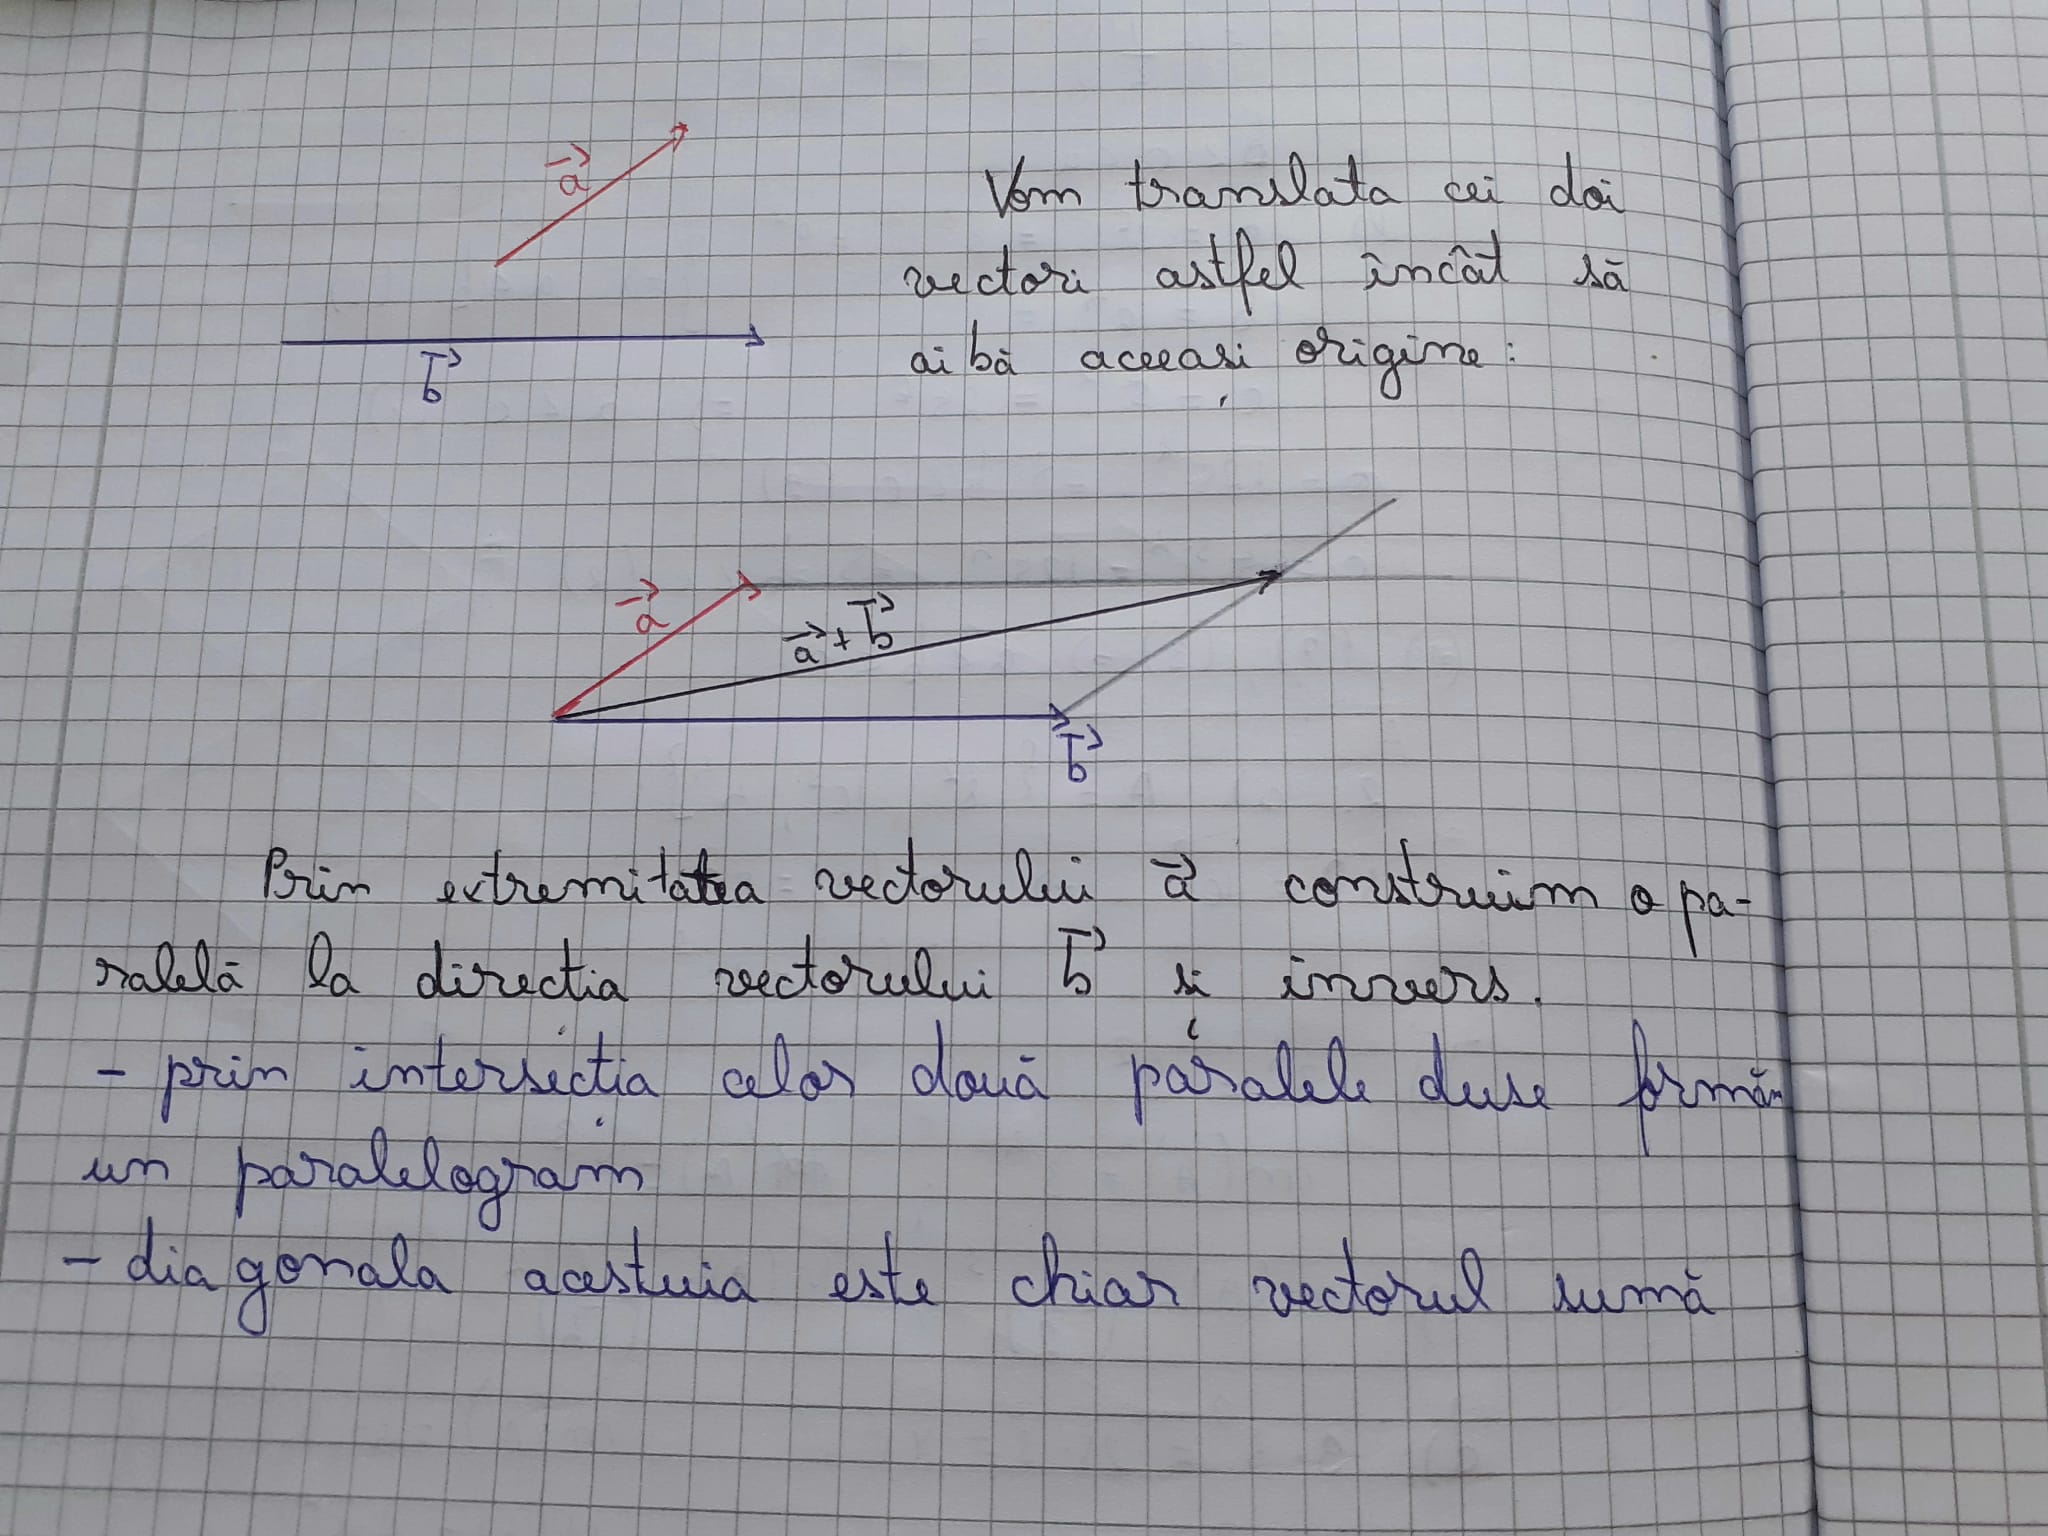 a⃗
Vom translata cei doi
vectori astfel încât să
b⃗
aibă aceeași origine:
a⃗
a⃗ + b⃗
b⃗
Prin extremitatea vectorului a⃗ construim o pa-
ralelă la direcția vectorului b⃗ și invers.
- prin intersecția celor două paralele duse formăm
un paralelogram
- diagonala acestuia este chiar vectorul sumă